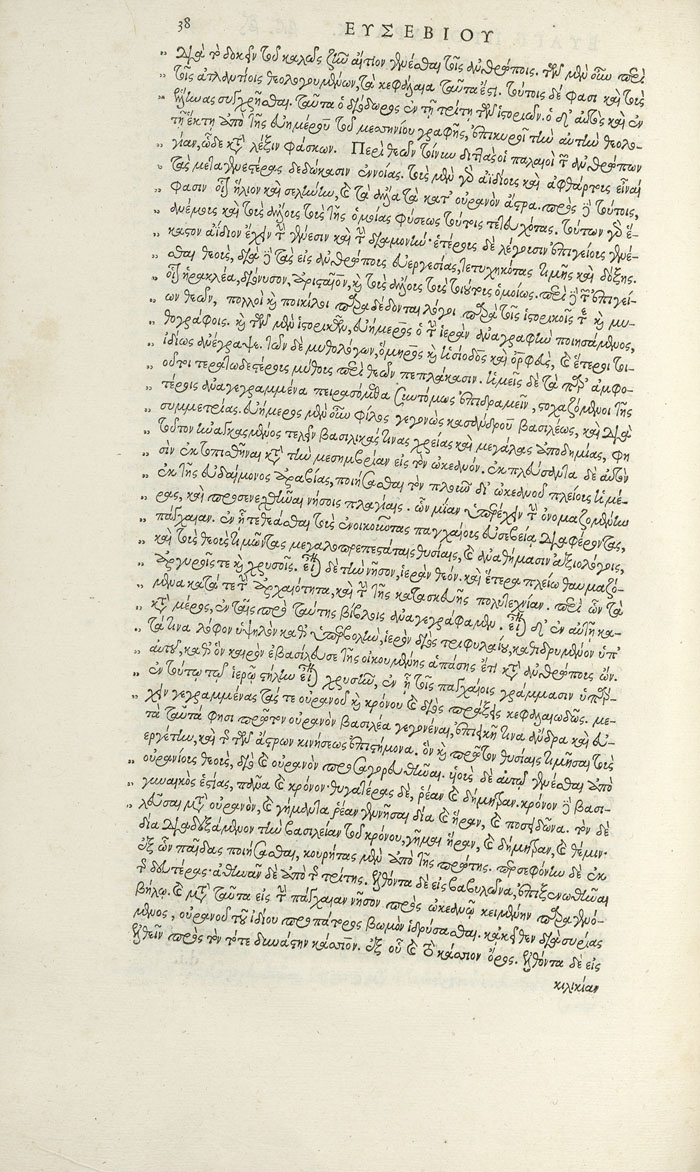 38 ΕΥΣΕΒΙΟΥ
„ διὰ τὸ δοκεῖν τοῦ καλῶς ζῆν αἴτιον γενέσθαι τοῖς ἀνθρώποις. τῶν μὲν οὖν περὶ
„ τοῖς ἀτλαντίοις θεολογουμένων, τὰ κεφάλαια ταῦτα ἐστί. τούτοις δέ φασι καὶ τοὺς
„ ἕλληνας συγχρῆσθαι. ταῦτα ὁ διόδωρος ἐν τῇ τρίτῃ τῶν ἱστοριῶν. ὁ δ' αὐτὸς καὶ ἐν
τῇ ἕκτῃ ἀπὸ τῆς εὐημέρου τοῦ μεσσηνίου γραφῆς, ἐπικυροῖ τὴν αὐτὴν θεολο-
„ γίαν, ὧδε κατὰ λέξιν φάσκων. Περὶ θεῶν τοίνυν διττὰς οἱ παλαιοὶ τῶν ἀνθρώπων
„ τὰς μεταγενεστέρας δεδώκασιν ἐννοίας. τοὺς μὲν γὰρ ἀϊδίους καὶ ἀφθάρτους εἶναί
„ φασιν οἷον ἥλιον καὶ σελήνην, καὶ τὰ ἄλλα τὰ κατ' οὐρανὸν ἄστρα. πρὸς δὲ τούτοις,
„ ἀνέμους καὶ τοὺς ἄλλους τοὺς τῆς ὁμοίας φύσεως τούτοις τετευχότας. τούτων γὰρ ἕ-
„ καστον ἀΐδιον ἔχειν τὴν γένεσιν καὶ τὴν διαμονήν. ἑτέρους δὲ λέγουσιν ἐπιγείους γενέ-
„ σθαι θεοὺς, διὰ δὲ τὰς εἰς ἀνθρώπους εὐεργεσίας, τετυχηκότας τιμῆς καὶ δόξης.
„ οἷον ἡρακλέα, διόνυσον, ἀρισταῖον, καὶ τοὺς ἄλλους τοὺς τούτοις ὁμοίως. περὶ δὲ τῶν ἐπιγεί-
„ ων θεῶν, πολλοὶ καὶ ποικίλοι παραδέδονται λόγοι παρὰ τοῖς ἱστορικοῖς τε καὶ μυ-
„ θογράφοις. καὶ τῶν μὲν ἱστορικῶν, εὐήμερος ὁ τὴν ἱερὰν ἀναγραφὴν ποιησάμενος,
„ ἰδίως ἀνέγραψε. τῶν δὲ μυθολόγων, ὅμηρος καὶ ἡσίοδος καὶ ὀρφεὺς, καὶ ἕτεροι τοι-
„ οῦτοι τερατωδεστέρους μύθους περὶ θεῶν πεπλάκασιν. ἡμεῖς δὲ τὰ παρ' ἀμφο-
„ τέροις ἀναγεγραμμένα πειρασόμεθα συντόμως ἐπιδραμεῖν, στοχαζόμενοι τῆς
„ συμμετρίας. εὐήμερος μὲν οὖν φίλος γεγονὼς κασσάνδρου βασιλέως, καὶ διὰ
„ τοῦτον ἠναγκασμένος τελεῖν βασιλικάς τινας χρείας καὶ μεγάλας ἀποδημίας, φη
„ σὶν ἐκτοπισθῆναι κατὰ τὴν μεσημβρίαν εἰς τὸν ὠκεανόν. ἐκπλεύσαντα δὲ αὐτὸν
„ ἐκ τῆς εὐδαίμονος ἀραβίας, ποιήσασθαι τὸν πλοῦν δι' ὠκεανοῦ πλείους ἡμέ-
„ ρας, καὶ προσενεχθῆναι νήσοις πλαγίαις. ὧν μίαν ὑπερέχειν τὴν ὀνομαζομένην
„ πάγχαιαν. ἐν ᾗ τεθεᾶσθαι τοὺς ἐνοικοῦντας παγχαίους εὐσεβείᾳ διαφέροντας,
„ καὶ τοὺς θεοὺς τιμῶντας μεγαλοπρεπεστάταις θυσίαις, καὶ ἀναθήμασιν ἀξιολόγοις,
„ ἀργυροῖς τε καὶ χρυσοῖς. εἶναι δὲ τὴν νῆσον, ἱερὰν θεῶν. καὶ ἕτερα πλείω θαυμαζό-
„ μενα κατά τε τὴν ἀρχαιότητα, καὶ τὴν τῆς κατασκευῆς πολυτεχνίαν. περὶ ὧν τὰ
„ κατὰ μέρος, ἐν ταῖς πρὸ ταύτης βίβλοις ἀναγεγράφαμεν. εἶναι δ' ἐν αὐτῇ κα-
„ τά τινα λόφον ὑψηλὸν καθ' ὑπερβολὴν, ἱερὸν διὸς τριφυλαίου, καθιδρυμένον ὑπ'
„ αὐτοῦ, καθ' ὃν καιρὸν ἐβασίλευσε τῆς οἰκουμένης ἁπάσης ἔτι κατὰ ἀνθρώπους ὤν.
„ ἐν τούτῳ τῷ ἱερῷ στήλην εἶναι χρυσῆν, ἐν ᾗ τοῖς παγχαίοις γράμμασιν ὑπάρ-
„ χειν γεγραμμένας τάς τε οὐρανοῦ καὶ κρόνου καὶ διὸς πράξεις κεφαλαιωδῶς. με-
„ τὰ ταῦτά φησι πρῶτον οὐρανὸν βασιλέα γεγονέναι, ἐπιεικῆ τινα ἄνδρα καὶ εὐ-
„ εργέτην, καὶ τῆς τῶν ἄστρων κινήσεως ἐπιστήμονα. ὃν καὶ πρῶτον θυσίαις τιμῆσαι τοὺς
„ οὐρανίους θεοὺς, διὸ καὶ οὐρανὸν προσαγορευθῆναι. υἱοὺς δὲ αὐτῷ γενέσθαι ἀπὸ
„ γυναικὸς ἑστίας, πᾶνα καὶ κρόνον· θυγατέρας δὲ, ῥέαν καὶ δήμητραν. κρόνον δὲ βασι-
„ λεῦσαι μετὰ οὐρανὸν, καὶ γήμαντα ῥέαν γεννῆσαι δία καὶ ἥραν, καὶ ποσειδῶνα. τὸν δὲ
δία διαδεξάμενον τὴν βασιλείαν τοῦ κρόνου, γῆμαι ἥραν, καὶ δήμητραν, καὶ θέμιν·
ἐξ ὧν παῖδας ποιήσασθαι, κουρῆτας μὲν ἀπὸ τῆς πρώτης. περσεφόνην δὲ ἐκ
τῆς δευτέρας· ἀθηνᾶν δὲ ἀπὸ τῆς τρίτης. ἐλθόντα δὲ εἰς βαβυλῶνα, ἐπιξενωθῆναι
βήλῳ. καὶ μετὰ ταῦτα εἰς τὴν πάγχαιαν νῆσον πρὸς ὠκεανῷ κειμένην παραγενό-
μενος, οὐρανοῦ τοῦ ἰδίου προπάτορος βωμὸν ἱδρύσασθαι. κἀκεῖθεν διὰ συρίας
ἐλθεῖν πρὸς τὸν τότε δυνάστην κάσιον. ἐξ οὗ καὶ τὸ κάσιον ὄρος. ἐλθόντα δὲ εἰς
κιλικίαν